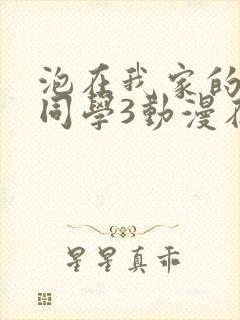 泡在我家的
同學3動漫在
星星真乖